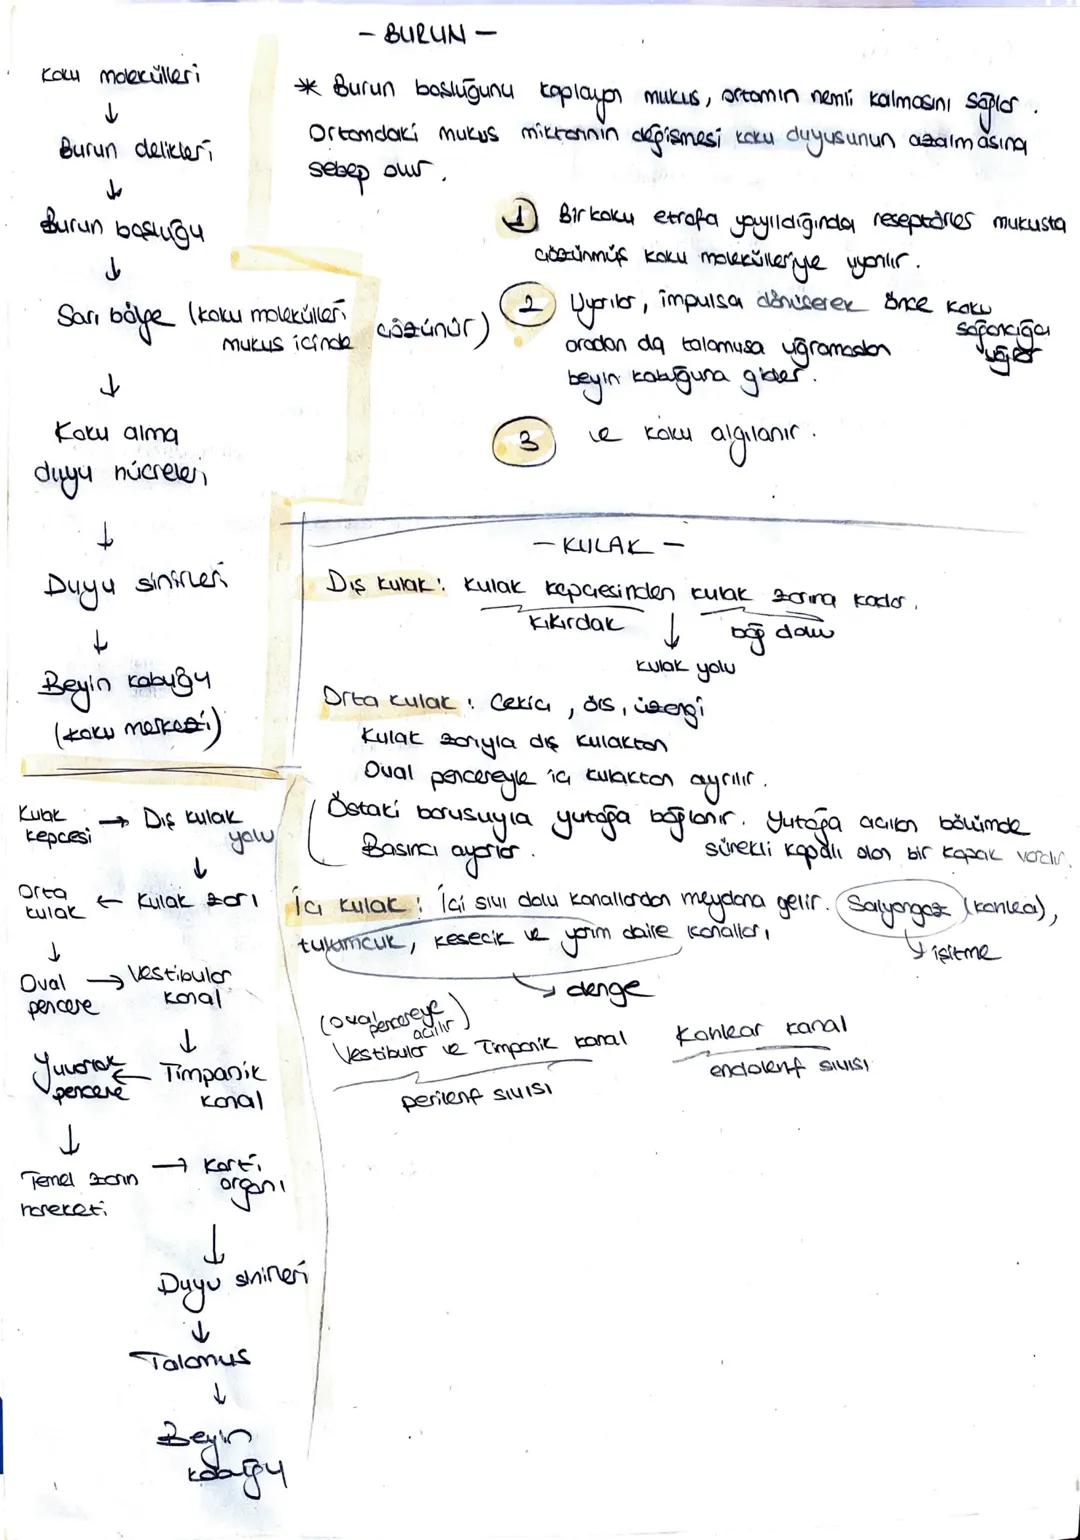 - BURUN -
Koku molekülleri
↓
Burun delikleri
↓
Burun boşluğu
↓
Sarı bölge (koku molekülleri
mukus içinde çözünür)
↓
Koku alma
duyu hücreleri
↓
Duyu sinirleri
↓
Beyin kabuğu
(koku merkezi)
* Burun boşluğunu kaplayan mukus, ortamın nemli kalmasını sağlar.
Ortamdaki mukus miktarının değişmesi koku duyusunun azalmasına
sebep olur.
1 Bir koku etrafa yayıldığında reseptörler mukusta
çözünmüş koku molekülleriyle uyarılır.
2 Uyarılar, impulsa dönüşerek önce koku
soğancığa
uğrar
oradan da talamusa uğramadan
beyin kabuğuna gider.
3 ve koku algılanır.
- KULAK -
Dış kulak: Kulak kepçesinden kulak zarına kadar.
kıkırdak ↓ bağ doku
kulak yolu
Orta kulak: Çekiç, örs, üzengi
Kulak zarıyla dış kulaktan
Oval pencereyle iç kulaktan ayrılır.
Östaki borusuyla yutağa bağlanır. Yutağa açılan bölümde
Basıncı ayarlar. sürekli kapalı olan bir kapak vardır.
İç kulak: İçi sıvı dolu kanallardan meydana gelir. Salyangoz (kohlea),
tulumcuk, kesecik ve yarım daire kanalları
↓ işitme
→ denge
(oval pencereye
açılır)
Vestibular ve Timpanik kanal Kohlear kanal
perilenf sıvısı endolenf sıvısı
Kulak kepçesi → Dış kulak yolu
↓
Orta kulak ← Kulak zarı
↓
Oval pencere → Vestibular kanal
↓
Yuvarlak pencere ← Timpanik kanal
↓
Temel zarın hareketi → Korti organı
↓
Duyu sinirleri
↓
Talamus
↓
Beyin
kabuğu